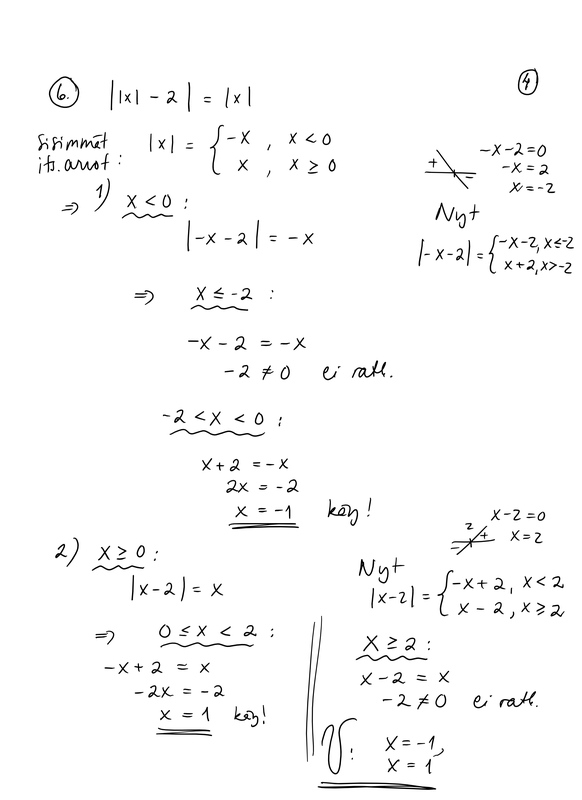 6. ||x| - 2| = |x|
4
Sisimmät its. arvot : |x| = { -x , x < 0
x , x ≥ 0
⇒ 1) x < 0 :
|-x - 2| = -x
+ -
-x-2=0
-x=2
x=-2
Nyt
|-x-2| = { -x-2, x≤-2
x+2, x>-2
⇒ x ≤ -2 :
-x - 2 = -x
-2 ≠ 0 ei ratk.
-2 < x < 0 :
x+2 = -x
2x = -2
x = -1 käy!
2) x ≥ 0 :
|x-2| = x
2
- +
x-2=0
x=2
Nyt
|x-2| = { -x+2, x < 2
x - 2, x ≥ 2
⇒ 0 ≤ x < 2 :
-x+2 = x
-2x = -2
x = 1 käy!
x ≥ 2 :
x-2 = x
-2 ≠ 0 ei ratk.
V: x=-1,
x=1